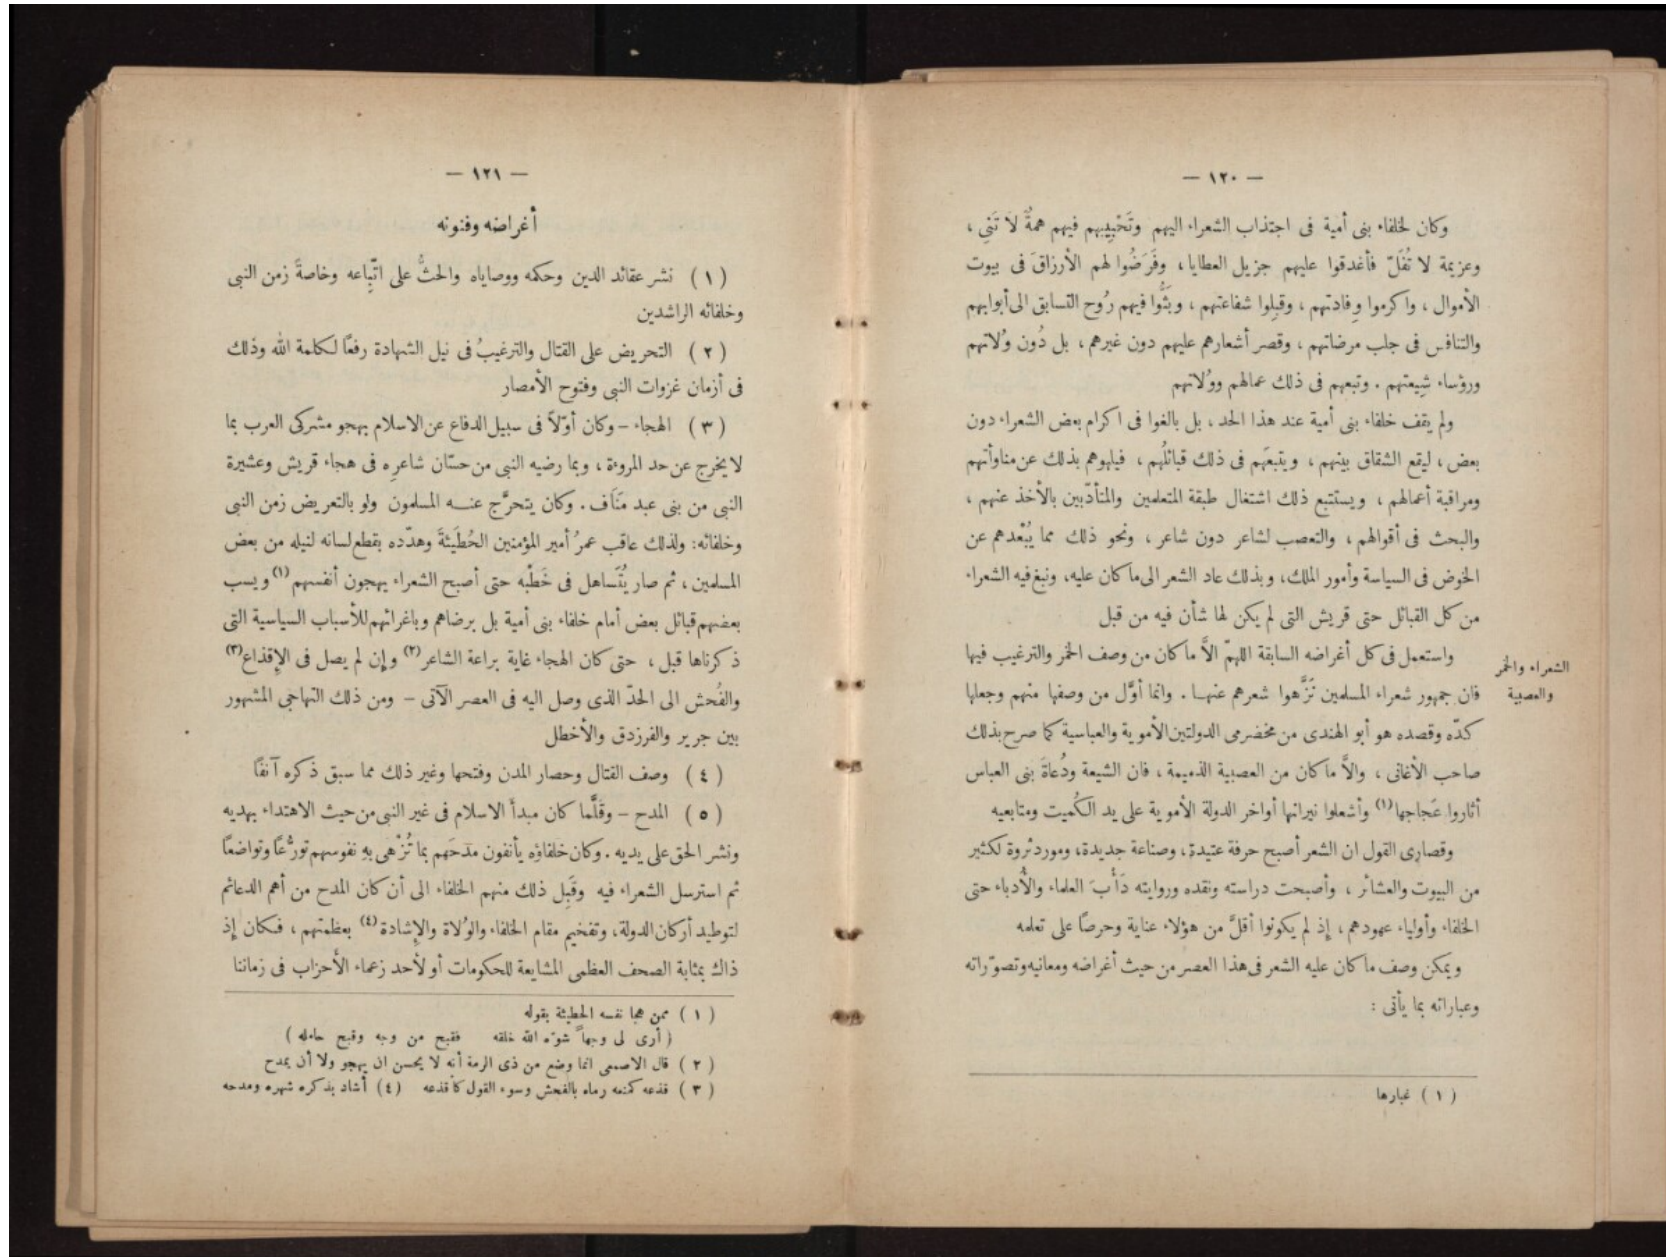 — ١٢٠ —
وكان لخلفاء بنى أمية فى اجتذاب الشعراء اليهم وتَحْبِيبهم فيهم همةٌ لا تَنِى ،
وعزيمة لا تُفَلّ فأغدقوا عليهم جزيل العطايا ، وفَرَضُوا لهم الأرزاقَ فى بيوت
الأموال ، واكرموا وِفادتهم ، وقبِلوا شفاعتهم ، وبَثُّوا فيهم رُوح التسابق الى أبوابهم
والتنافس فى جلب مرضاتهم ، وقصر أشعارهم عليهم دون غيرهم ، بل دُون وُلاتهم
ورؤساء شِيعتهم . وتبعهم فى ذلك عمالهم ووُلاتهم
ولم يقف خلفاء بنى أمية عند هذا الحد ، بل بالغوا فى اكرام بعض الشعراء دون
بعض ، ليقع الشقاق بينهم ، ويتبعَهم فى ذلك قبائلُهم ، فيلهوهم بذلك عن مناوأتهم
ومراقبة أعمالهم ، ويستتبع ذلك اشتغال طبقة المتعلمين والمتأدّبين بالأخذ عنهم ،
والبحث فى أقوالهم ، والتعصب لشاعر دون شاعر ، ونحو ذلك مما يُبْعدهم عن
الخوض فى السياسة وأمور الملك ، وبذلك عاد الشعر الى ما كان عليه ، ونبغ فيه الشعراء
من كل القبائل حتى قريش التى لم يكن لها شأن فيه من قبل
الشعراء والخمر
والعصبية
واستعمل فى كل أغراضه السابقة اللهمّ الاَّ ما كان من وصف الخمر والترغيب فيها
فان جمهور شعراء المسلمين نَزَّهوا شعرهم عنها . وانما أوّل من وصفها منهم وجعلها
كدّه وقصده هو أبو الهندى من مخضرمى الدولتين الأموية والعباسية كما صرح بذلك
صاحب الأغانى ، والاَّ ما كان من العصبية الذميمة ، فان الشيعة ودُعاةَ بنى العباس
أثاروا عَجاجها (١) وأشعلوا نيرانها أواخر الدولة الأموية على يد الكُميت ومتابعيه
وقصارى القول ان الشعر أصبح حرفة عتيدة ، وصناعة جديدة ، ومورد ثروة لكثير
من البيوت والعشائر ، وأصبحت دراسته ونقده وروايته دَأْبَ العلماء والأدباء حتى
الخلفاء وأولياء عهودهم ، إذ لم يكونوا أقلَّ من هؤلاء عناية وحرصًا على تعلمه
ويمكن وصف ما كان عليه الشعر فى هذا العصر من حيث أغراضه ومعانيه وتصوّراته
وعباراته بما يأتى :
( ١ ) غبارها
— ١٢١ —
أغراضه وفنونه
( ١ ) نشر عقائد الدين وحكمه ووصاياه والحثُّ على اتّبِاعه وخاصةً زمن النبى
وخلفائه الراشدين
( ٢ ) التحريض على القتال والترغيبُ فى نيل الشهادة رفعًا لكلمة الله وذلك
فى أزمان غزوات النبى وفتوح الأمصار
( ٣ ) الهجاء – وكان أوّلاً فى سبيل الدفاع عن الاسلام بهجو مشركى العرب بما
لا يخرج عن حد المروءة ، وبما رضيه النبى من حسّان شاعرِه فى هجاء قريش وعشيرة
النبى من بنى عبد مَنَاف . وكان يتحرَّج عنه المسلمون ولو بالتعريض زمن النبى
وخلفائه : ولذلك عاقب عمرُ أمير المؤمنين الحُطَيئةَ وهدّده بقطع لسانه لنيله من بعض
المسلمين ، ثم صار يُتَساهل فى خَطْبه حتى أصبح الشعراء يهجون أنفسهم (١) ويسب
بعضهم قبائل بعض أمام خلفاء بنى أمية بل برضاهم وباغرائهم للأسباب السياسية التى
ذكرناها قبل ، حتى كان الهجاء غاية براعة الشاعر (٢) وإن لم يصل فى الإقذاع (٣)
والفُحش الى الحدّ الذى وصل اليه فى العصر الآتى – ومن ذلك التهاجى المشهور
بين جرير والفرزدق والأخطل
( ٤ ) وصف القتال وحصار المدن وفتحها وغير ذلك مما سبق ذكره آنفًا
( ٥ ) المدح – وقَلَّما كان مبدأ الاسلام فى غير النبى من حيث الاهتداء بهديه
ونشر الحق على يديه . وكان خلفاؤه يأنفون مدَحَهم بما تُزْهى به نفوسهم تورُّعًا وتواضعًا
ثم استرسل الشعراء فيه وقَبِل ذلك منهم الخلفاء الى أن كان المدح من أهم الدعائم
لتوطيد أركان الدولة ، وتفخيم مقام الخلفاء والوُلاة والإشادة (٤) بعظمتهم ، فكان إذ
ذاك بمثابة الصحف العظمى المشايعة للحكومات أو لأحد زعماء الأحزاب فى زماننا
( ١ ) ممن هجا نفسه الحطيئة بقوله
( أرى لى وجهاً شوّه الله خلقه فقبح من وجه وقبح حامله )
( ٢ ) قال الاصمعى انما وضع من ذى الرمة أنه لا يحسن ان يهجو ولا أن يمدح
( ٣ ) قذعه كمنعه رماه بالفحش وسوء القول كأقذعه (٤) أشاد بذكره شهره ومدحه